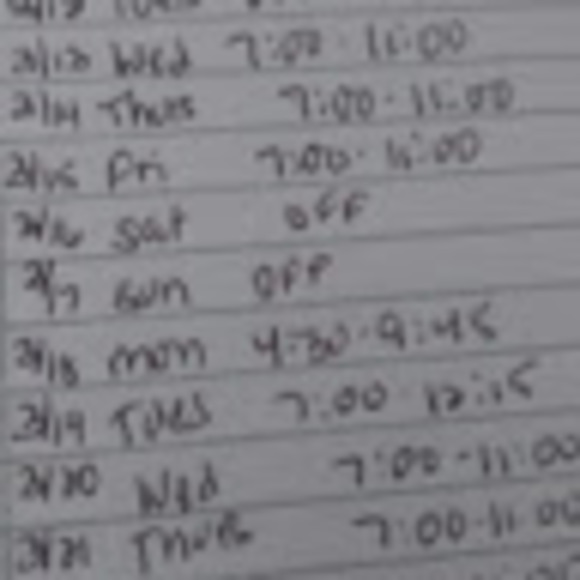 2/13 Wed 7:00-11:00
2/14 Thurs 7:00-11:00
2/15 Fri 7:00-11:00
2/16 sat OFF
2/17 sun OFF
2/18 mon 4:30-9:45
2/19 Tues 7:00-12:15
2/20 Wed 7:00-11:00
2/21 Thurs 7:00-11:00